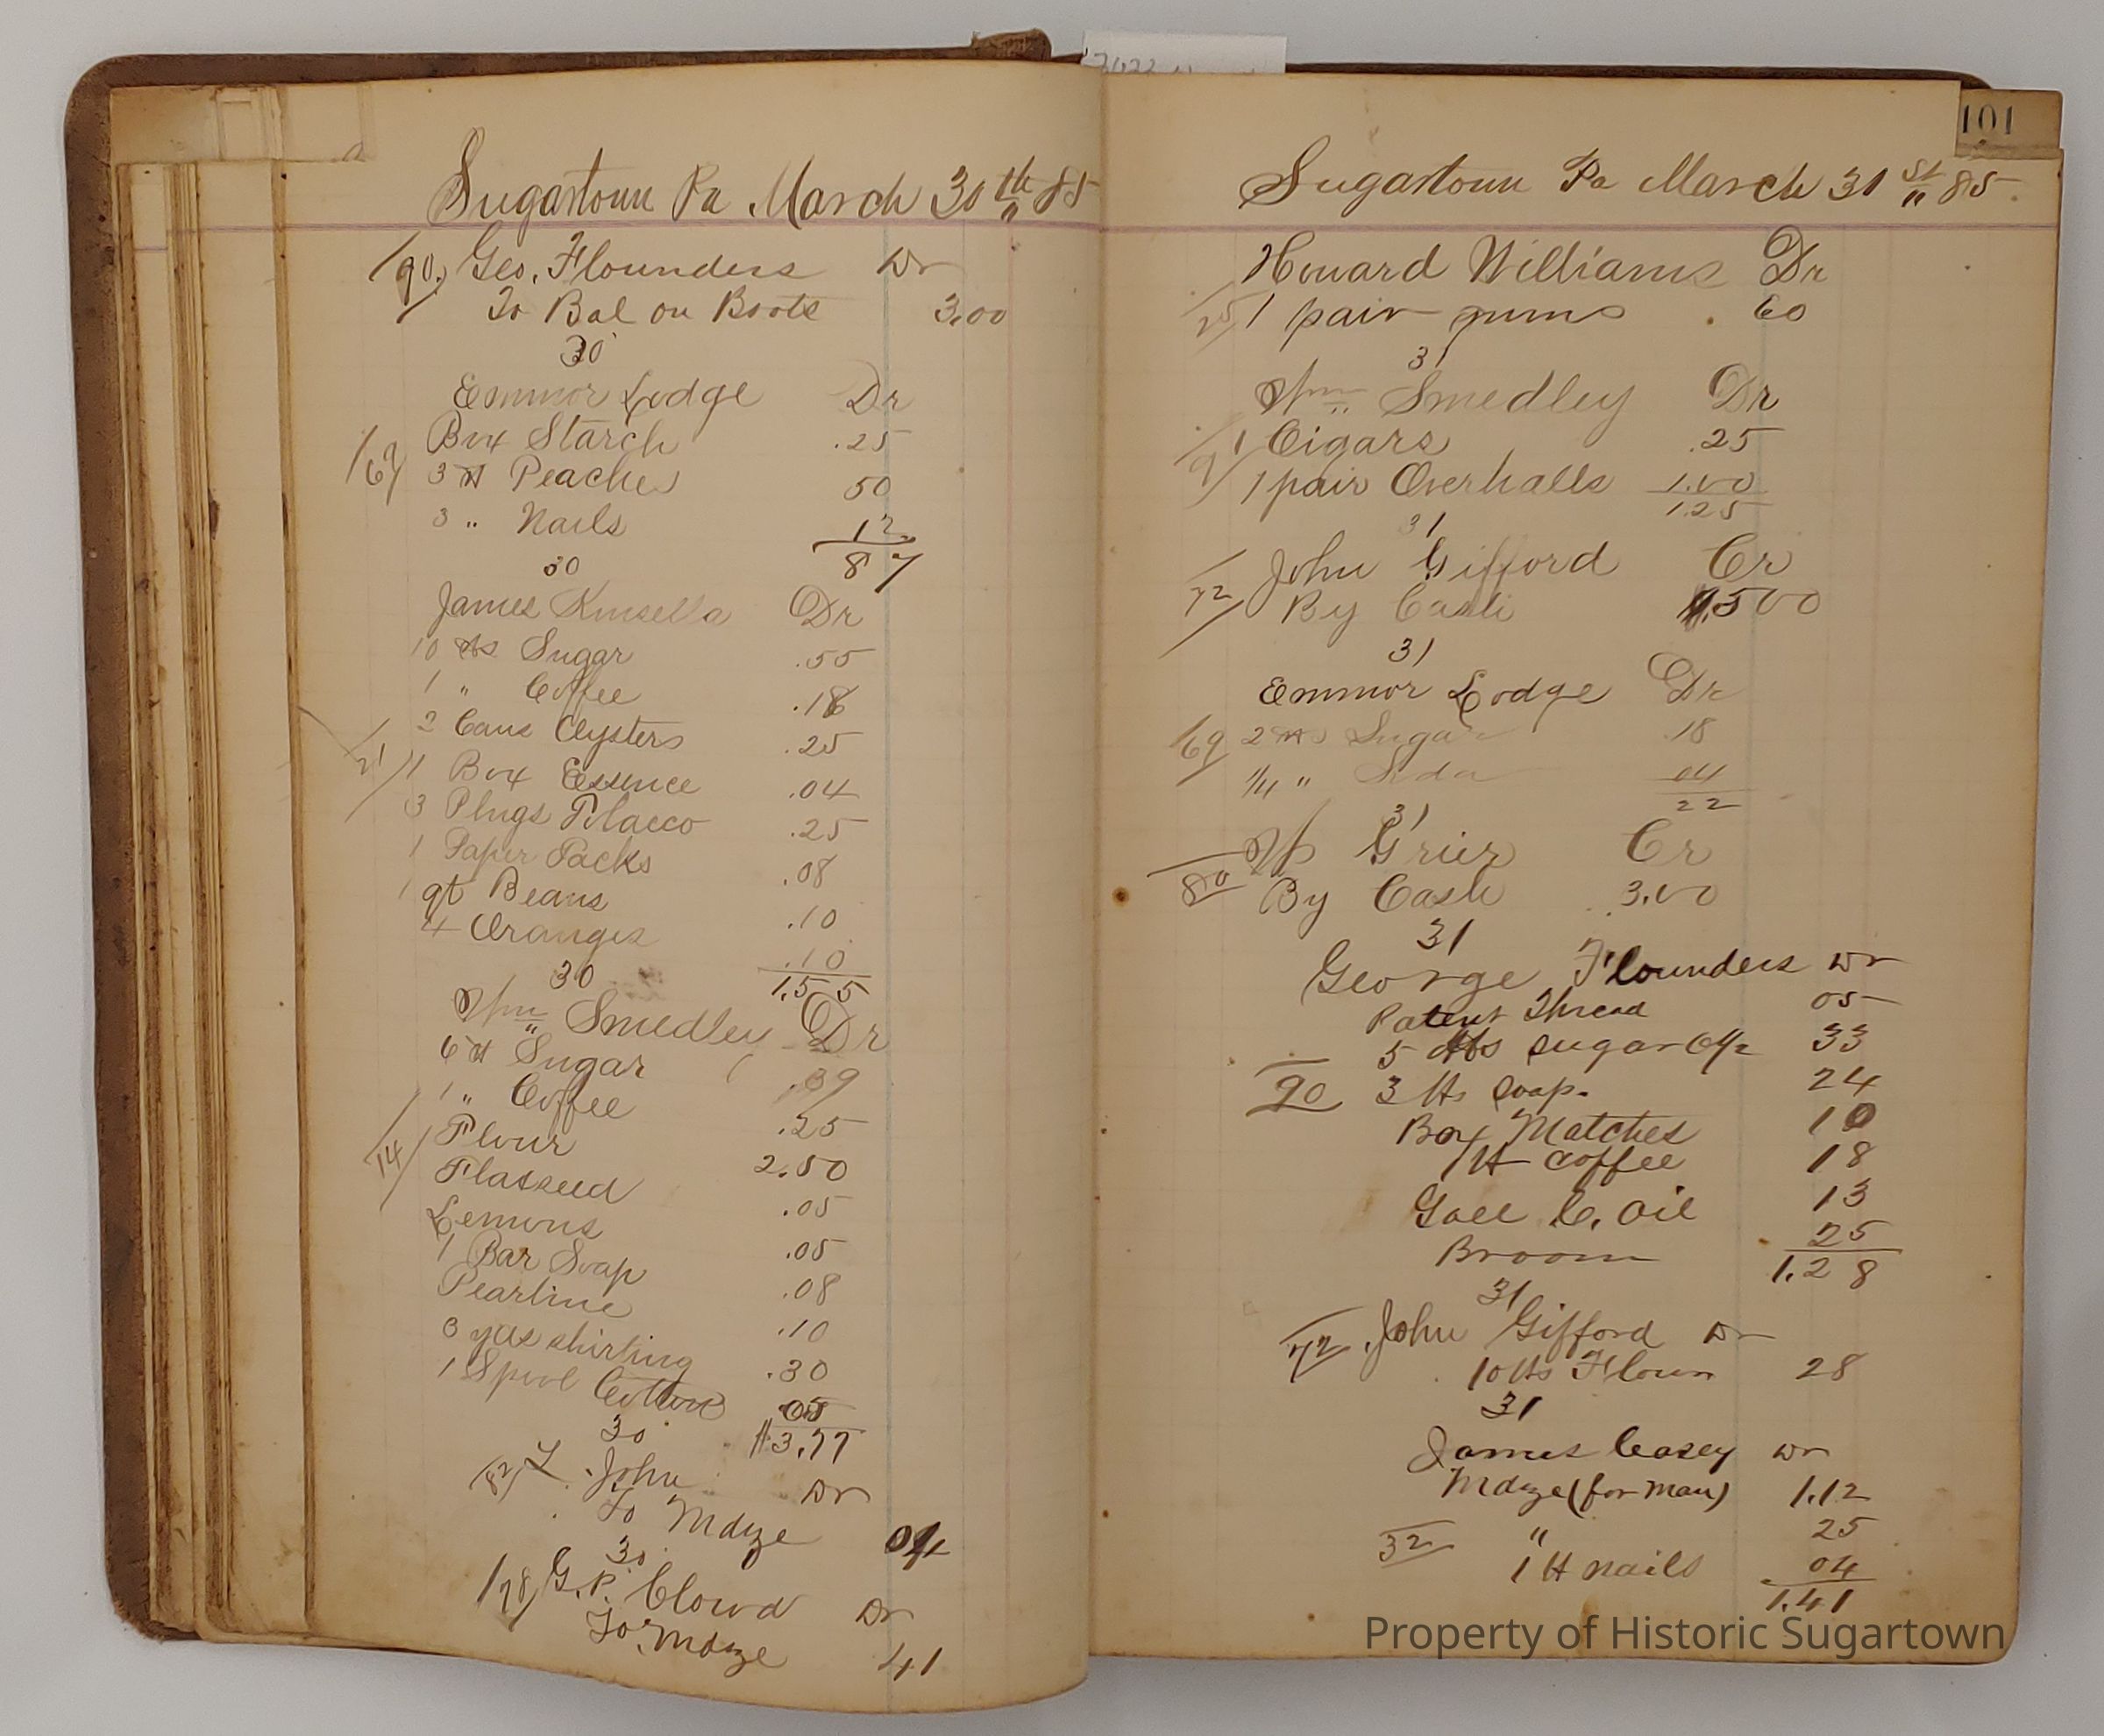 Sugartown Pa March 30th 85
90 Geo. Flounders Dr
To Bal on Boots 3.00
30
Emmor Lodge Dr
Box Starch .25
69 3 lb Peaches 50
3 " Nails 12
87
30
James Kinsella Dr
10 lbs Sugar .55
1 " Coffee .18
2 Cans Oysters .25
21 1 Box Essence .04
3 Plugs Tobacco .25
1 Paper Tacks .08
1 qt Beans .10
4 Oranges .10
1.55
30
Wm Smedley Dr
6 lb Sugar .39
1 " Coffee .25
14 Flour 2.50
Flaxseed .05
Lemons .05
1 Bar Soap .08
Pearline .10
3 yds shirting .30
1 Spool Cotton 05
$3.77
30
82 L. John Dr
To Mdze 04
30
78 G.P. Clowd Dr
To Mdze 41
101
Sugartown Pa March 31st 85
Howard Williams Dr
25 1 pair gums 60
31
Wm Smedley Dr
Cigars .25
1 pair Overhalls 1.00
1.25
31
72 John Gifford Cr
By Cash 15 00
31
Emmor Lodge Dr
69 2 lbs Sugar 18
1/4 " Soda 04
22
31
Grier Cr
80 By Cash 3.00
31
George Flounders Dr
Patent Thread 05
5 lbs sugar 6½ 33
90 3 lbs soap. 24
Box Matches 10
1 lb coffee 18
Gall C. Oil 13
Broom 25
1.28
31
72 John Gifford Dr
10 lbs Flour 28
31
James Casey Dr
Mdze (for man) 1.12
32 " 25
1 lb nails 04
1.41
Property of Historic Sugartown